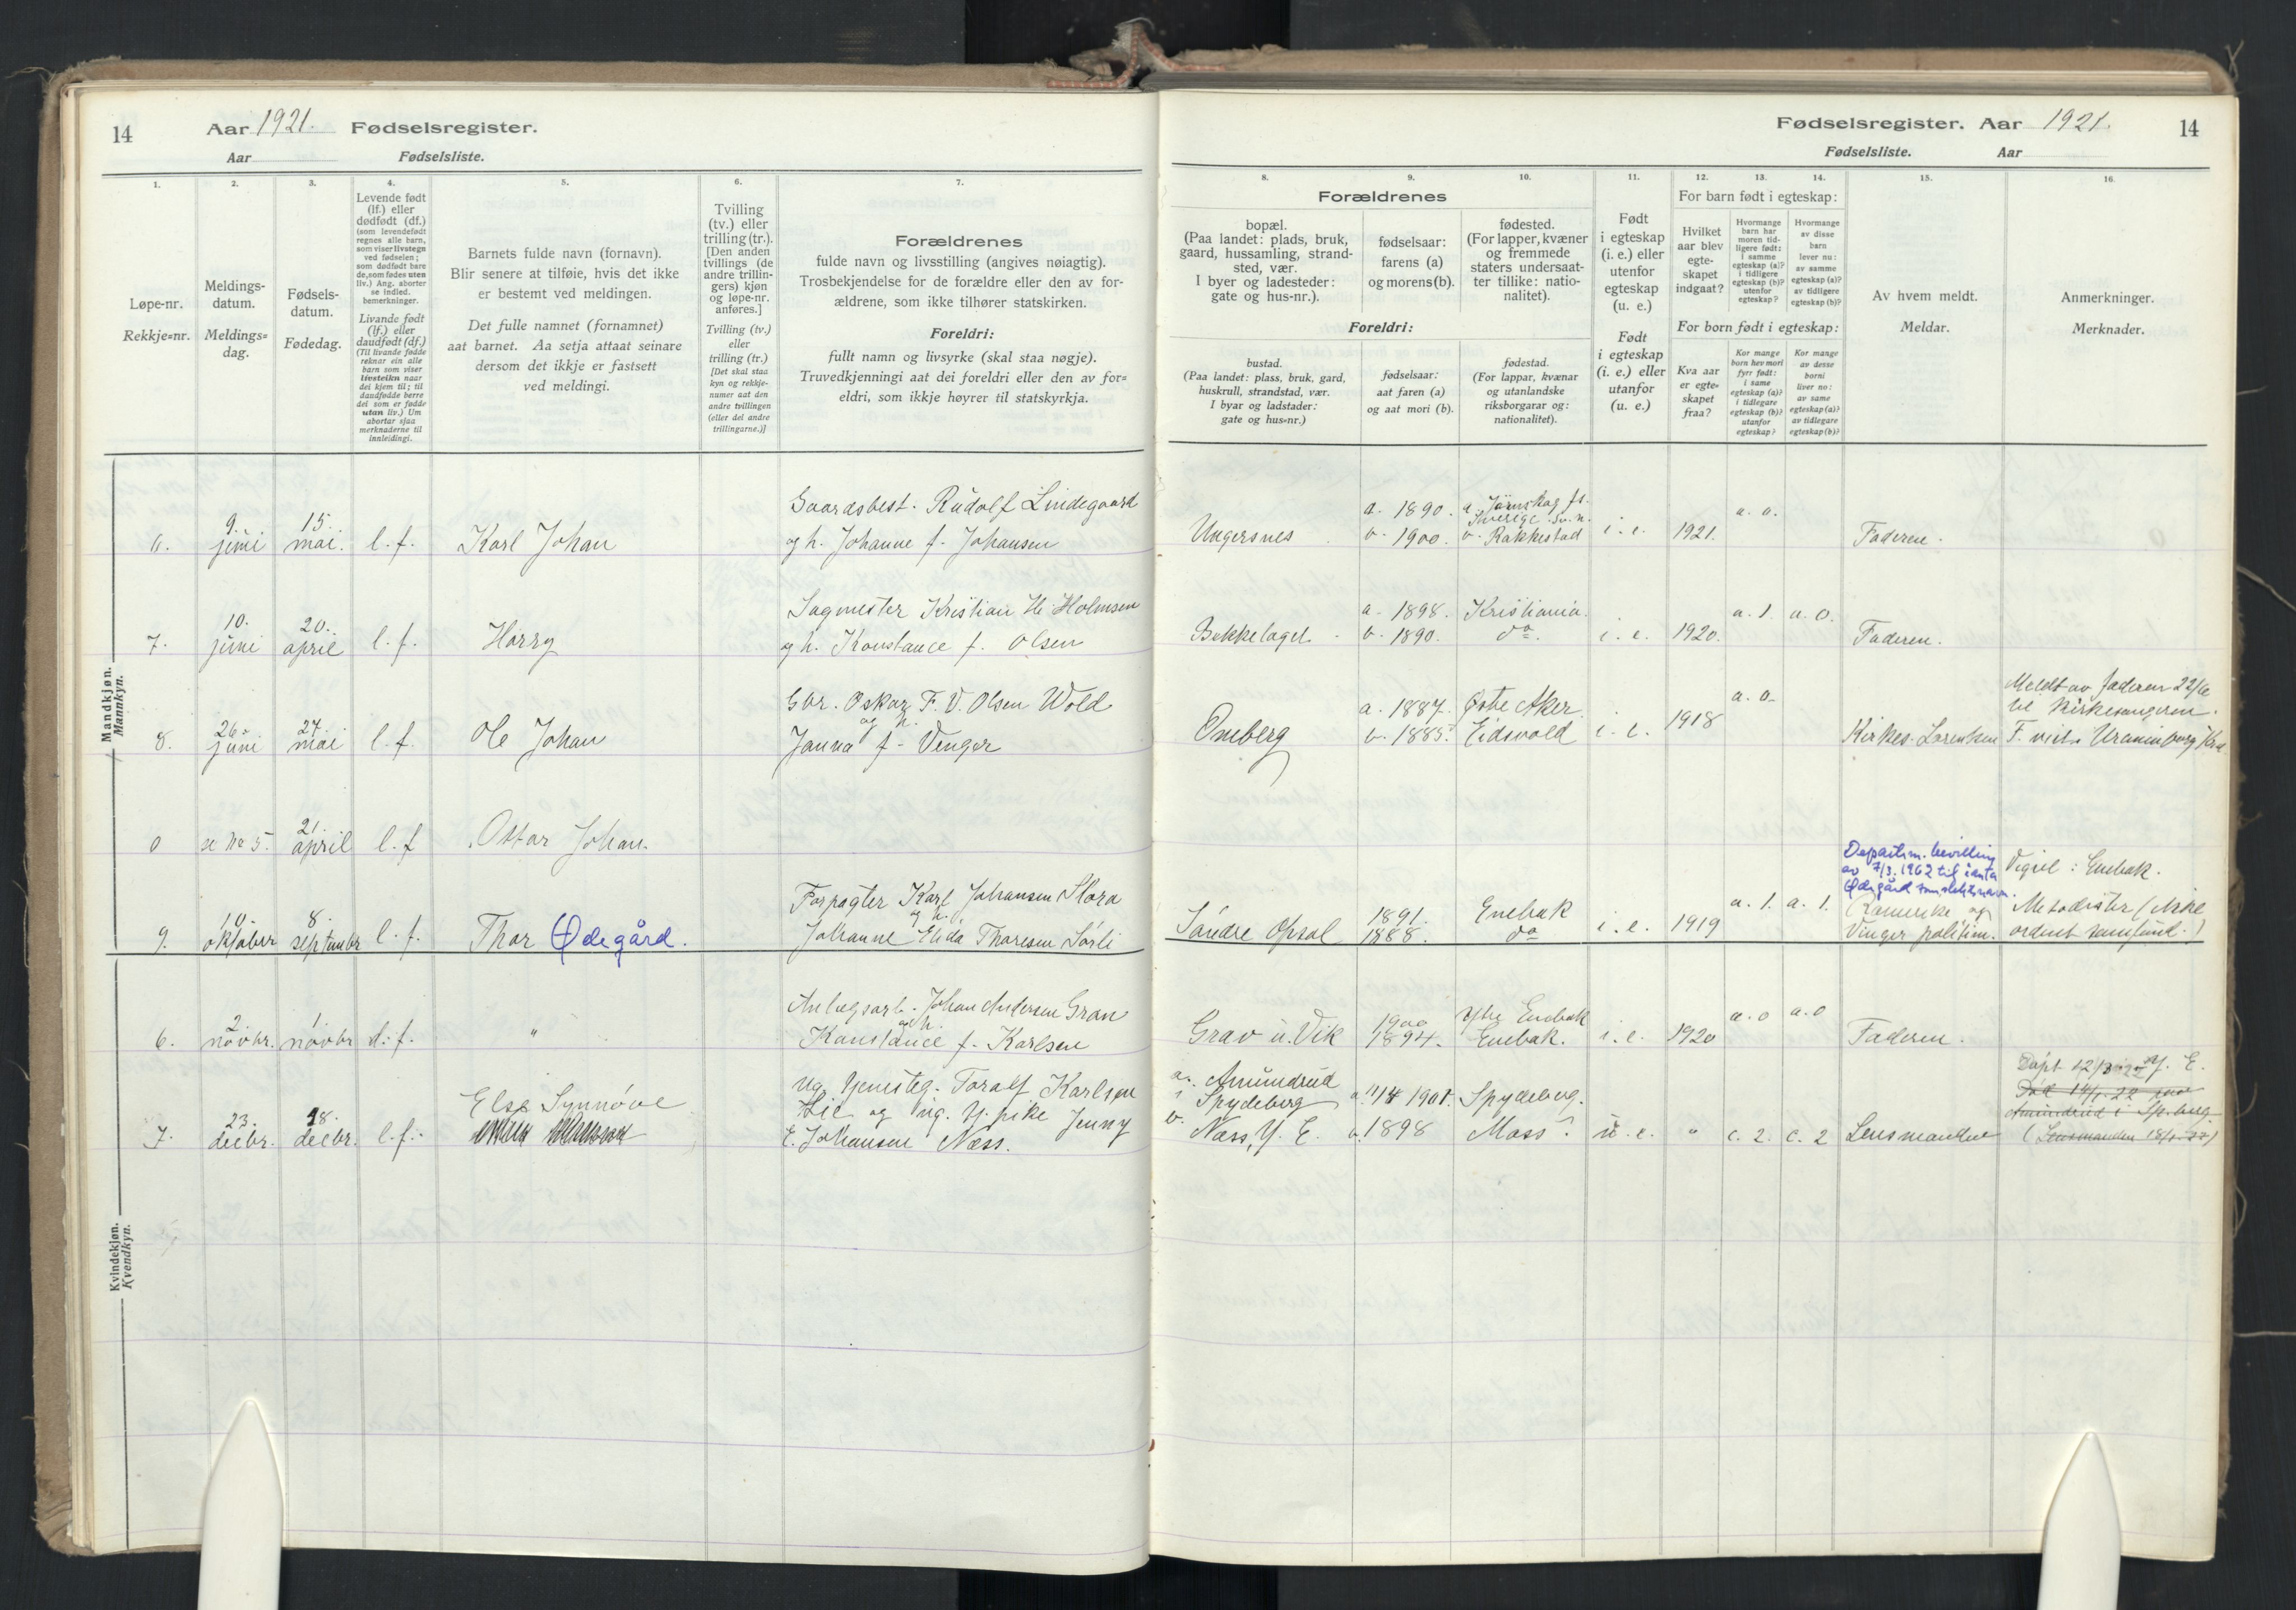 14
Aar 1921. Fødselsregister.
Aar Fødselsliste.
1.
Løpe-nr.
Rekkje=nr.
2.
Meldings-
datum.
Meldings=
dag.
3.
Fødsels-
datum.
Fødedag.
4.
Levende født
(lf.) eller
dødfødt (df.)
(som levendefødt
regnes alle barn,
som viser livstegn
ved fødselen;
som dødfødt bare
de, som fødes uten
liv.) Ang. aborter
se indled.
bemerkninger.
Livande født
(lf.) eller
daudfødt (df.)
(Til livande fødde
reknar ein alle
barn som viser
livsteikn naar
dei kjem til; til
daudfødde berre
dei som er fødde
utan liv.) Um
abortar sjaa
merknaderne til
innleidingi.
5.
Barnets fulde navn (fornavn).
Blir senere at tilføie, hvis det ikke
er bestemt ved meldingen.
Det fulle namnet (fornamnet)
aat barnet. Aa setja attaat seinare
dersom det ikkje er fastsett
ved meldingi.
6.
Tvilling
(tv.) eller
trilling (tr.).
[Den anden
tvillings (de
andre trillin-
gers) kjøn
og løpe-nr.
anføres.]
Tvilling (tv.)
eller
trilling (tr.)
[Det skal staa
kyn og rekkje-
numer aat den
andre tvillingen
(eller dei andre
trillingarne.)]
7.
Forældrenes
fulde navn og livsstilling (angives nøiagtig).
Trosbekjendelse for de forældre eller den av for-
ældrene, som ikke tilhører statskirken.
Foreldri:
fullt namn og livsyrke (skal staa nøgje).
Truvedkjenningi aat dei foreldri eller den av for=
eldri, som ikkje høyrer til statskyrkja.
Mandkjøn.
Mannkyn.
6. 9. juni 15. mai. l.f. Karl Johan
Gaardsbest. Rudolf Lindegaard
og h. Johanne f. Johansen
7. 10. juni 20. april l.f. Harry
Sagmester Kristian H. Holmsen
og h. Konstance f. Olsen
8. 26. juni 27. mai l.f. Ole Johan
Gbr. Oskar F. V. Olsen Wold
og h.
Janna f. Venger
0 se No 5. 21. april l.f. Ottar Johan.
9. 10. oktober 8. september l.f. Thor Ødegård.
Forpagter Karl Johansen Flora
og h.
Johanne Elida Thoresen Sørli
Kvindekjøn.
Kvendkyn.
6. 2. novbr. 1. novbr d.f. "
Anlegsarb. Johan Andersen Gran
og h.
Konstance f. Karlsen
7. 23. decbr. 18. decbr. l.f. Else Synnøve
Ug. tjenesteg. Toralf Karlsen
Lie og ug. tj. pike Jenny
E. Johansen Næss.
Fødselsregister. Aar 1921. 14
Fødselsliste. Aar
8.
Forældrenes
bopæl.
(Paa landet: plads, bruk,
gaard, hussamling, strand-
sted, vær.
I byer og ladesteder:
gate og hus-nr.).
Foreldri:
bustad.
(Paa landet: plass, bruk, gard,
huskrull, strandstad, vær.
I byar og ladstader:
gate og hus=nr.)
9.
fødselsaar:
farens (a)
og morens (b).
fødselsaar:
aat faren (a)
og aat mori (b).
10.
fødested.
(For lapper, kvæner
og fremmede
staters undersaat-
ter tillike: natio-
nalitet).
fødestad.
(For lappar, kvænar
og utanlandske
riksborgarar og:
nationalitet).
11.
Født
i egteskap
(i. e.) eller
utenfor
egteskap
(u. e.)
Født
i egteskap
(i. e.) eller
utanfor
(u. e.)
12. 13. 14.
For barn født i egteskap:
Hvilket
aar blev
egte-
skapet
indgaat?
Hvormange
barn har
moren tid-
ligere født:
i samme
egteskap (a)?
i tidligere
egteskap (b)?
utenfor
egteskap?
Hvormange
av disse
barn
lever nu:
av samme
egteskap (a)?
av tidligere
egteskap (b)?
For born født i egteskap:
Kva aar
er egte-
skapet
fraa?
Kor mange
born hev mori
fyrr født:
i same
egteskap (a)?
i tidlegare
egteskap (b)?
utanfor
egteskap?
Kor mange
av desse
borni
liver no:
av same
egteskap (a)?
av tidlegare
egteskap (b)?
15.
Av hvem meldt.
Meldar.
16.
Anmerkninger.
Merknader.
Ungersnes a. 1890. b. 1900. a. Järnskog fs. Sverige. sv. u. b. Rakkestad i. e. 1921. a. o. Faderen.
Bekkelaget a. 1898. b. 1890. Kristiania. do. i. e. 1920. a. 1. a. 0. Faderen.
Oneberg a. 1887. b. 1885. Østre Aker. Eidsvold i. e. 1918 a. o. Kirkes. Lorentsen
Meldt av faderen 22/6
til Kirkesangeren.
F. viet i Uranienborg Kra
Departm. bevilling
av 7/3.1962 til å anta
Ødegård som slektsnavn.
(Romerike og
Vinger politim.
Vigsel: Enebak.
Metodister (ikke
ordent samfund.)
Søndre Opsal 1891. 1888. Enebak do i. e. 1919 a. 1. a. 1.
Grav u. Vik 1900 1894. Ytre Enebak Enebak. i. e. 1920 a. o a. o Faderen.
a. Amundrud
i Spydeberg a. 11/4 1901. Spydeberg.
b.
Næss, Y. E. b. 1898 Moss? u. e. " c. 2. c. 2 Lensmanden
Døpt 12/3 22 Y. E.
Amundrud i Sp.berg
(Lensmanden 18/1 22)